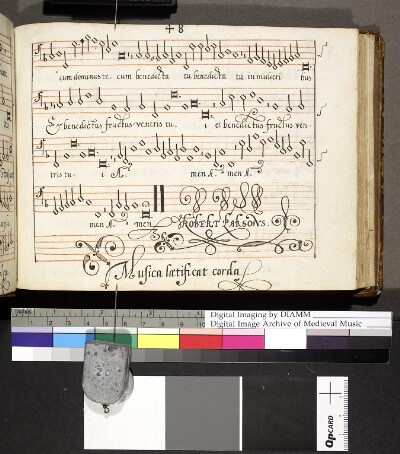 48
cum dominus te. cum benedicta tu benedicta tu in mulieri bus
Et benedictus fructus ventris tu. i et benedictus fructus ven-
tris tu. i A. men A. men A.
men A. men. ROBERT PARSONS.
Musica lætificat corda
Inches 1 2 3 4
Digital Imaging by DIAMM
Digital Image Archive of Medieval Music
QPCARD